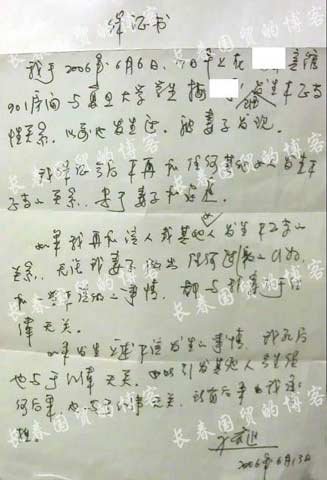 保证书
我于2006年6月6日、7日早上在 宾馆
901房间与复旦大学学生 发生不正当
性关系，以前也发生过，被妻子发现。
我保证今后不再和任何其他女人发生不
正当的关系，忠于妻子和家庭。
如果我再和该人或其他人发生不正当的
关系，无论我妻子做出任何过激的行为
和 事情，都与我妻子于
律无关。
如果发生 不该发生的事情，我死后
也与于 律无关，如果引发其他人产生任
何后果，也与于 律无关，所有后果由我承
担。
2006年6月13日
长春国贸的博客